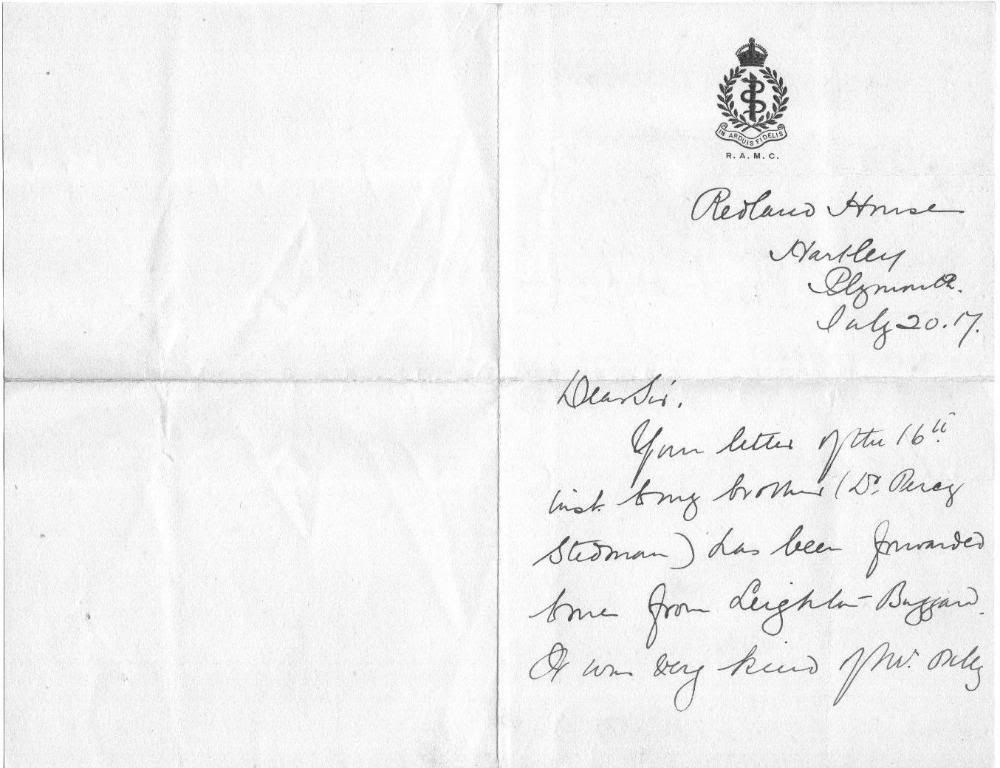 IN ARDUIS FIDELIS
R.A.M.C.
Redland House
Hartley
Plymouth.
July 20.17.
Dear Sir.
Your letter of the 16th
inst. to my brother (Dr. Percy
Stedman) has been forwarded
to me from Leighton Buzzard.
It was very kind of Mr.